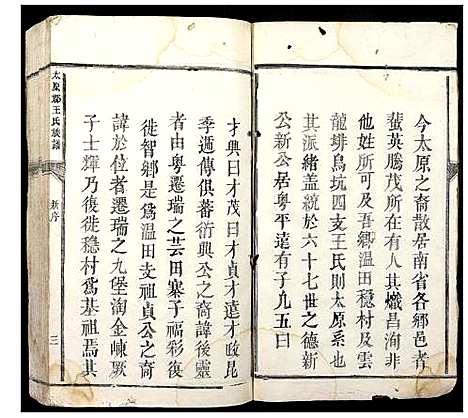 今太原之裔散居南省各鄉邑者
蜚英騰茂所在有人其熾昌洵非
他姓所可及吾鄉溫田穩村及雲
龍堋鳥坑四支王氏則太原系也
其派緒蓋統於六十七世之德新
公新公居粵平遠有子九五曰
才興曰才茂曰才貞才達才政昆
季遞傳俱蕃衍興公之裔諱後靈
者由粵遷瑞之芸田寨子福彩復
徙智鄉是爲溫田支祖貞公之裔
諱於位者遷瑞之九堡淘金崠厥
子士輝乃復徙穩村爲基祖焉其
太原郡王氏族譜
新序
三